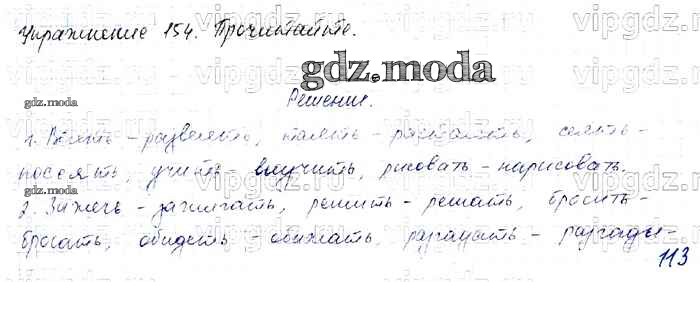 Упражнение 154. Прочитайте.
gdz.moda
gdz.moda
Решение.
1. Веять - развеять, таять - растаять, сеять -
посеять, учить - выучить, рисовать - нарисовать.
gdz.moda
2. Зажечь - зажигать, решить - решать, бросить -
бросать, обидеть - обижать, разгадать - разгады-
113